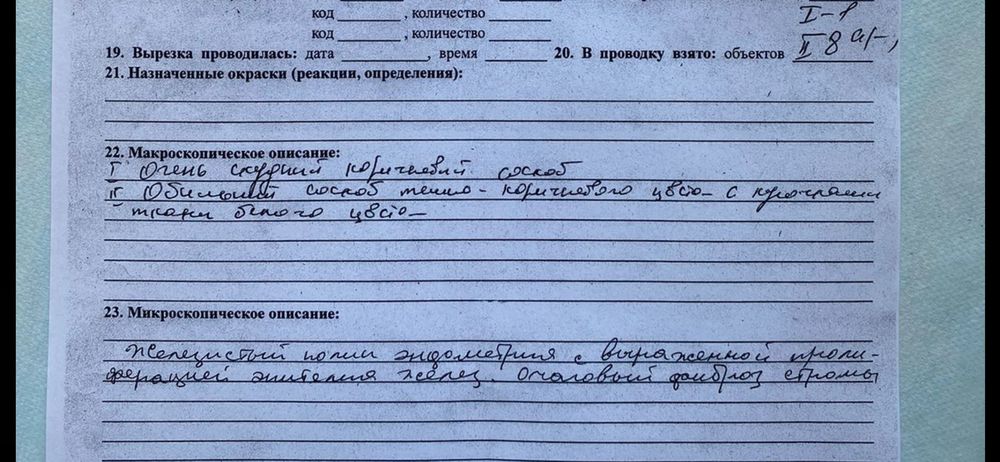 код ______ , количество ______
I-1
код ______ , количество ______
19. Вырезка проводилась: дата ______, время ______ 20. В проводку взято: объектов II 8
21. Назначенные окраски (реакции, определения):
22. Макроскопическое описание:
I Очень скудный коричневый соскоб
II Обильный соскоб темно-коричневого цвета с кусочками
ткани белого цвета
23. Микроскопическое описание:
Железистый полип эндометрия с выраженной проли-
ферацией эпителия желез. Очаговый фиброз стромы